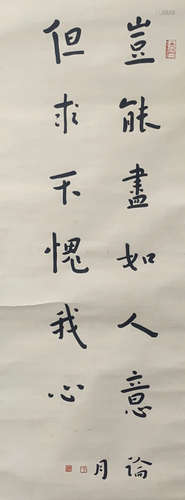 豈能盡如人意
但求不愧我心
論月